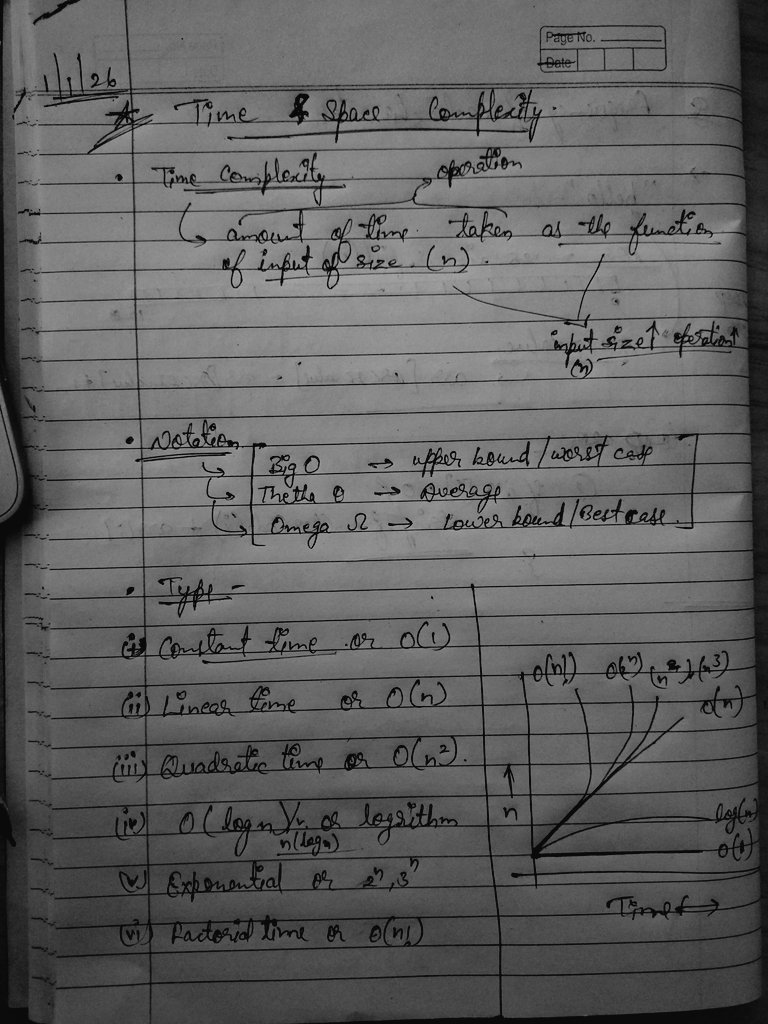 Page No.
Date
1/1/26
Time & Space Complexity.
• Time Complexity
operation
↳ amount of time taken as the function
of input of size. (n).
input size↑ operation↑
(n)
• Notation
Big O → upper bound/worst case
Thetha θ → Average
Omega Ω → Lower bound/Best case.
• Type -
(i) Constant time or O(1)
(ii) Linear time or O(n)
(iii) Quadratic time or O(n²).
(iv) O(log n) or logrithm
n(logn)
(v) Exponential or 2ⁿ, 3ⁿ
(vi) Factorial time or O(n!)
O(n!) O(2ⁿ) (n²) (n³)
O(n)
n
log(n)
O(1)
Time →